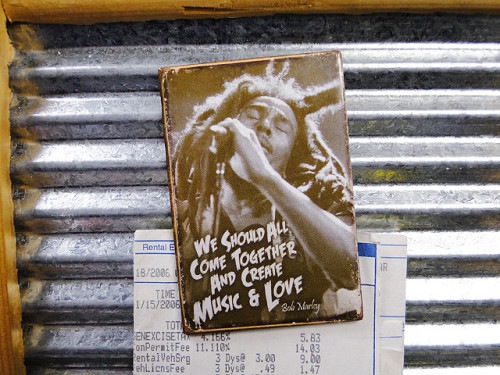 WE SHOULD ALL
COME TOGETHER
AND CREATE
MUSIC & LOVE
Bob Marley
Rental
18/2006
TIME
1/15/2006
ENEXCISETAX 4.166% 5.83
onPermitFee 11.110% 14.03
entalVehSrg 3 Dys@ 3.00 9.00
ehLicnsFee 3 Dys@ .49 1.47